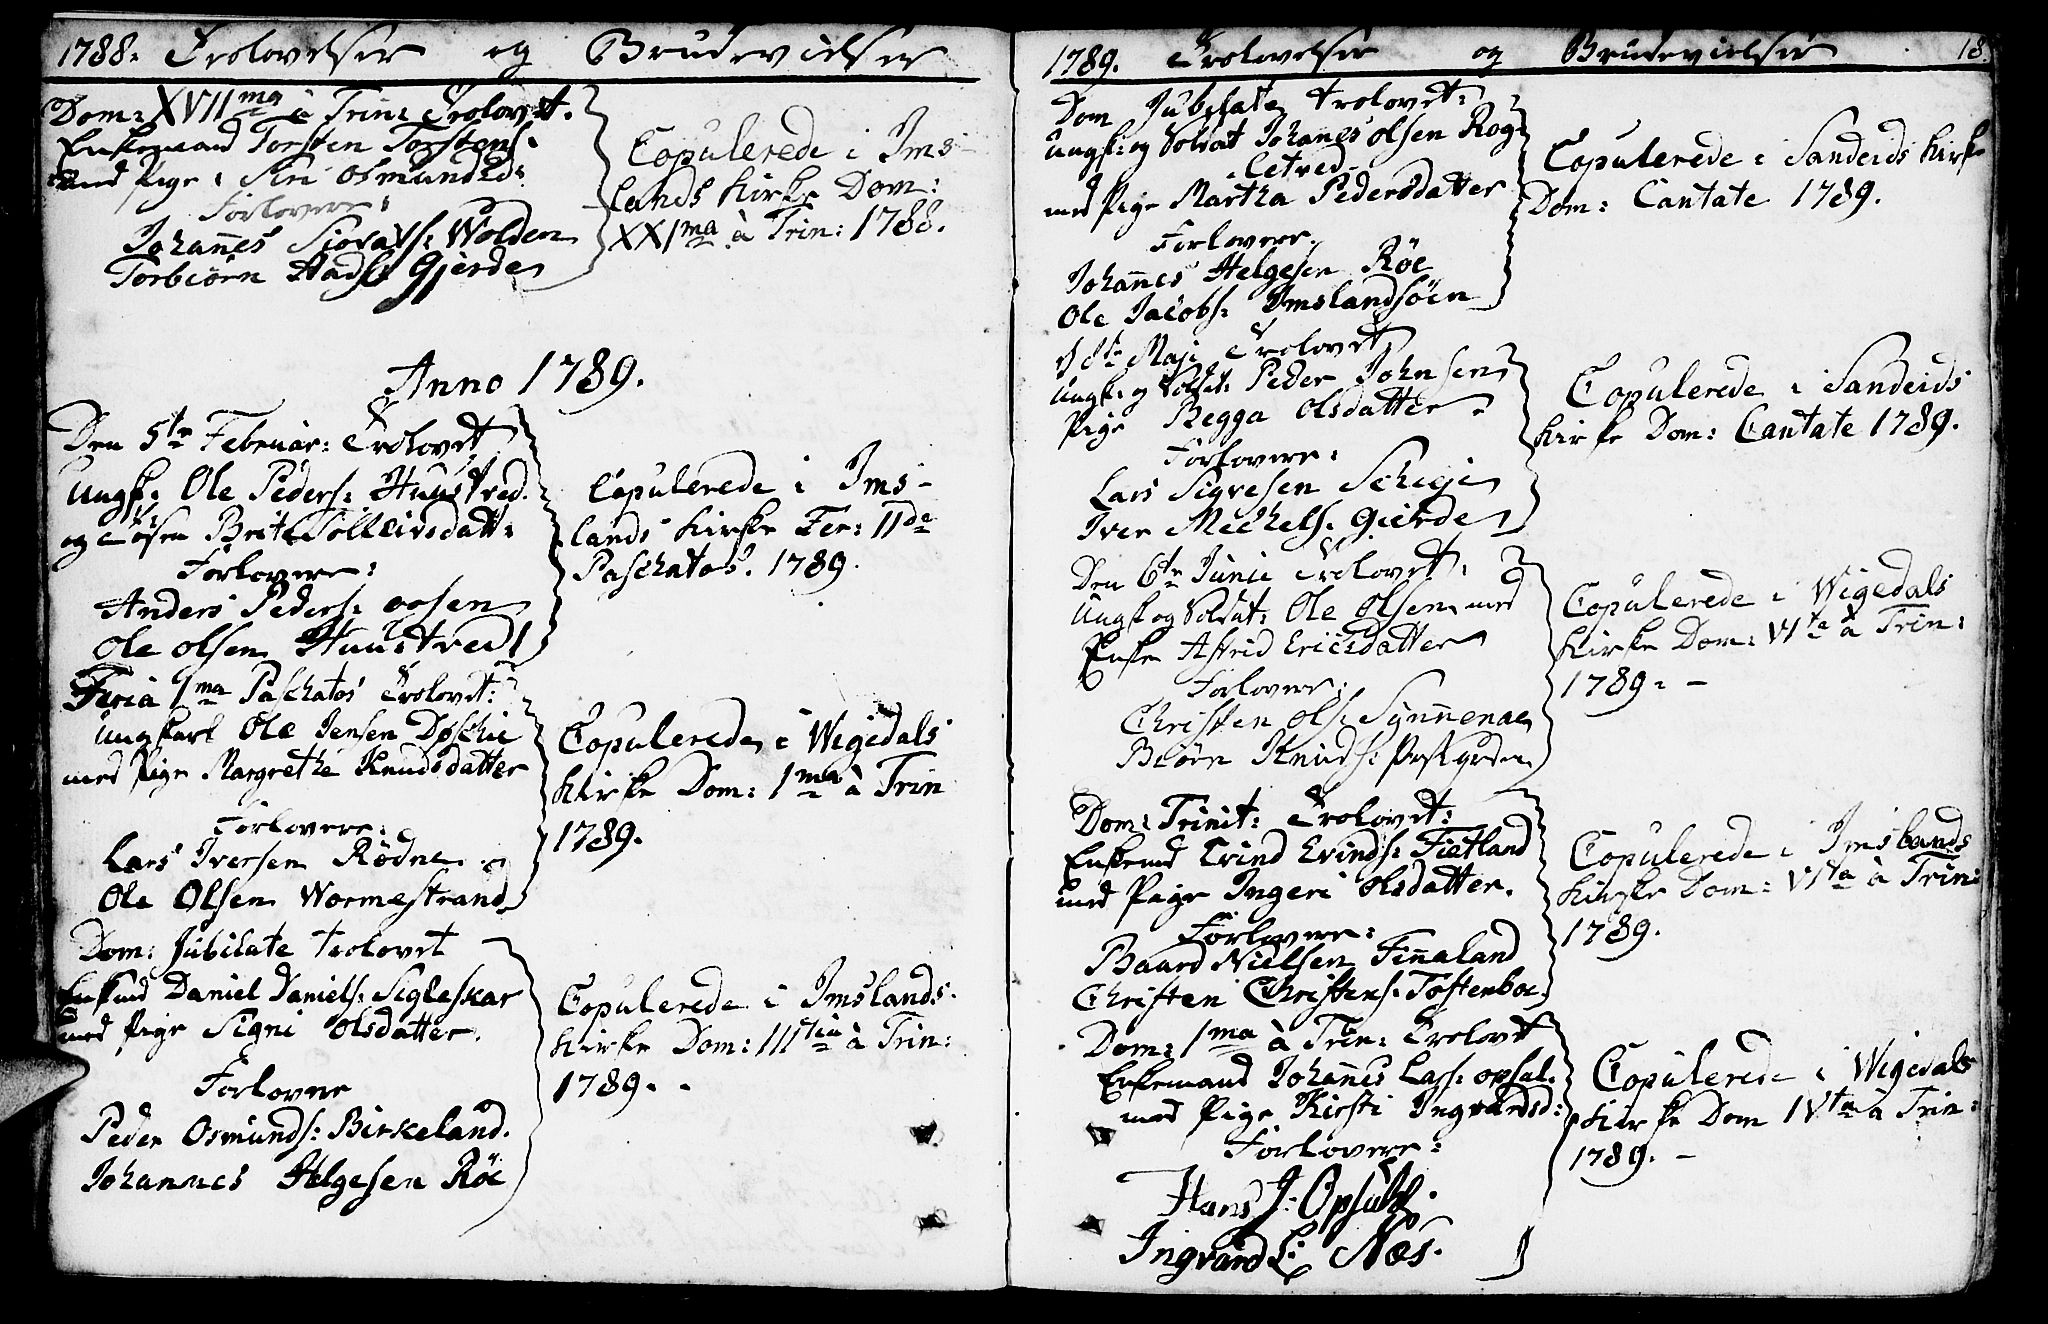 1788. Trolovelser og Brudevielser
Dom: XVIIma à Trin: Trolovet.
Enkemand Torsten Torstens:
med Pige: Siri Osmundsd:
Forlovere:
Johannes Siovats: Wolden
Torbiörn Aads: Gjerde
Copulerede i Ims-
lands Kirke Dom:
XXIma à Trin: 1788.
Anno 1789.
Den 5te Februar: Trolovet
Ungk: Ole Peders: Huustved.
og Tösen Brite Tolleivsdatt:
Forlovere:
Anders Peders:
Ole Olsen Huustved
Copulerede i Ims-
lands Kirke Fer: IIde
Paschatos. 1789.
Feria 1ma Paschatos Trolovet:
Ungkarl Ole Jensen Døschie
med Pige Margrethe Knudsdatter
Forlovere:
Lars Iversen Rødne
Ole Olsen Wormestrand
Copulerede i Wigedals
Kirke Dom: 1ma à Trin
1789.
Dom: Jubilate trolovet
Enkmd Daniel Daniels: Sigleskar
med Pige Signi Olsdatter.
Forlovere
Peder Osmunds: Birkeland.
Johannes Helgesen Röe
Copulerede i Imslands.
Kirke Dom: IIItia à Trin:
1789. -
1789. Trolovelser og Brudevielser 18.
Dom Jubilate trolovet:
Ungk: og Soldat Johanes Olsen Rog-
letved
med Pige Martha Pedersdatter
Forlovere.
Johannes Helgesen Röe
Ole Jacobs: Imslandsöen
Copulerede i Sandeids Kirke
Dom: Cantate 1789.
d 8te Maji Trolovet
Ungk: og Soldat: Peder Johnsen
Pige Begga Olsdatter.
Forlovere:
Lars Sigvesen Scheje
Iver Michels: Gierde
Copulerede i Sandeids
Kirke Dom: Cantate 1789.
Den 6te Junii Trolovet:
Ungk og Soldat: Ole Olsen med
Enke Astrid Ericsdatter
Forlovere:
Christen Ols: Synnenaae
Biörn Knuds:
Copulerede i Wigedals
Kirke Dom: VIta à Trin:
1789. -
Dom: Trinit: Trolovet:
Enkemd Evind Evinds: Fietland
med Pige Ingeri Olsdatter.
Forlovere:
Baard Nielsen Finnaland
Christen Christens: Tostenboe
Copulerede i Imslands
Kirke Dom: VIta à Trin:
1789.
Dom: 1ma à Trin: Trolovet
Enkemand Johannes Lars: Opsal.
med Pige Kirsti Ingvardsd:
Forlovere:
Hans J: Opsahl.
Ingvard L: Næs.
Copulerede i Wigedals
Kirke Dom IVta à Trin:
1789. -